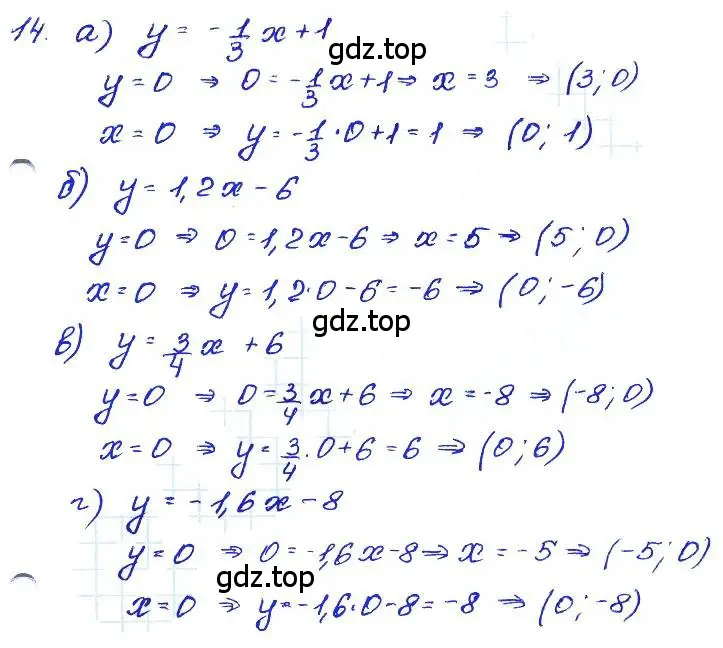 14. а) y = -1/3 x + 1
gdz.top
y = 0 ⇒ 0 = -1/3 x + 1 ⇒ x = 3 ⇒ (3; 0)
x = 0 ⇒ y = -1/3 · 0 + 1 = 1 ⇒ (0; 1)
б) y = 1,2x - 6
y = 0 ⇒ 0 = 1,2x - 6 ⇒ x = 5 ⇒ (5; 0)
x = 0 ⇒ y = 1,2 · 0 - 6 = -6 ⇒ (0; -6)
gdz.top
в) y = 3/4 x + 6
y = 0 ⇒ 0 = 3/4 x + 6 ⇒ x = -8 ⇒ (-8; 0)
x = 0 ⇒ y = 3/4 · 0 + 6 = 6 ⇒ (0; 6)
г) y = -1,6x - 8
y = 0 ⇒ 0 = -1,6x - 8 ⇒ x = -5 ⇒ (-5; 0)
gdz.top
x = 0 ⇒ y = -1,6 · 0 - 8 = -8 ⇒ (0; -8)